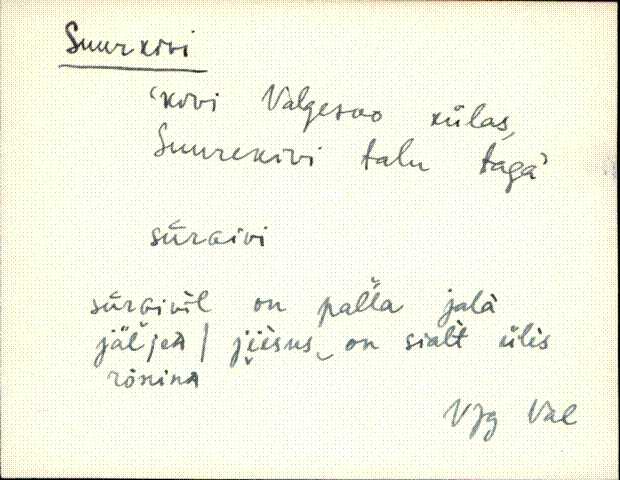 Suurkivi
‘kivi Valgesoo külas,
Suurekivi talu taga’
sūrᴋivi
sūrᴋivil on pal̆la jala
jäl̆jeᴀ | ji̯i̬sus‿ on sialt ülis
rönina
VJg Val